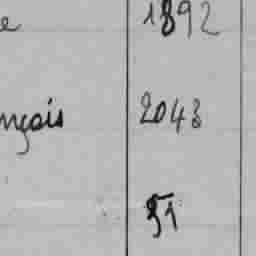 e 1892
nçais 2043
51